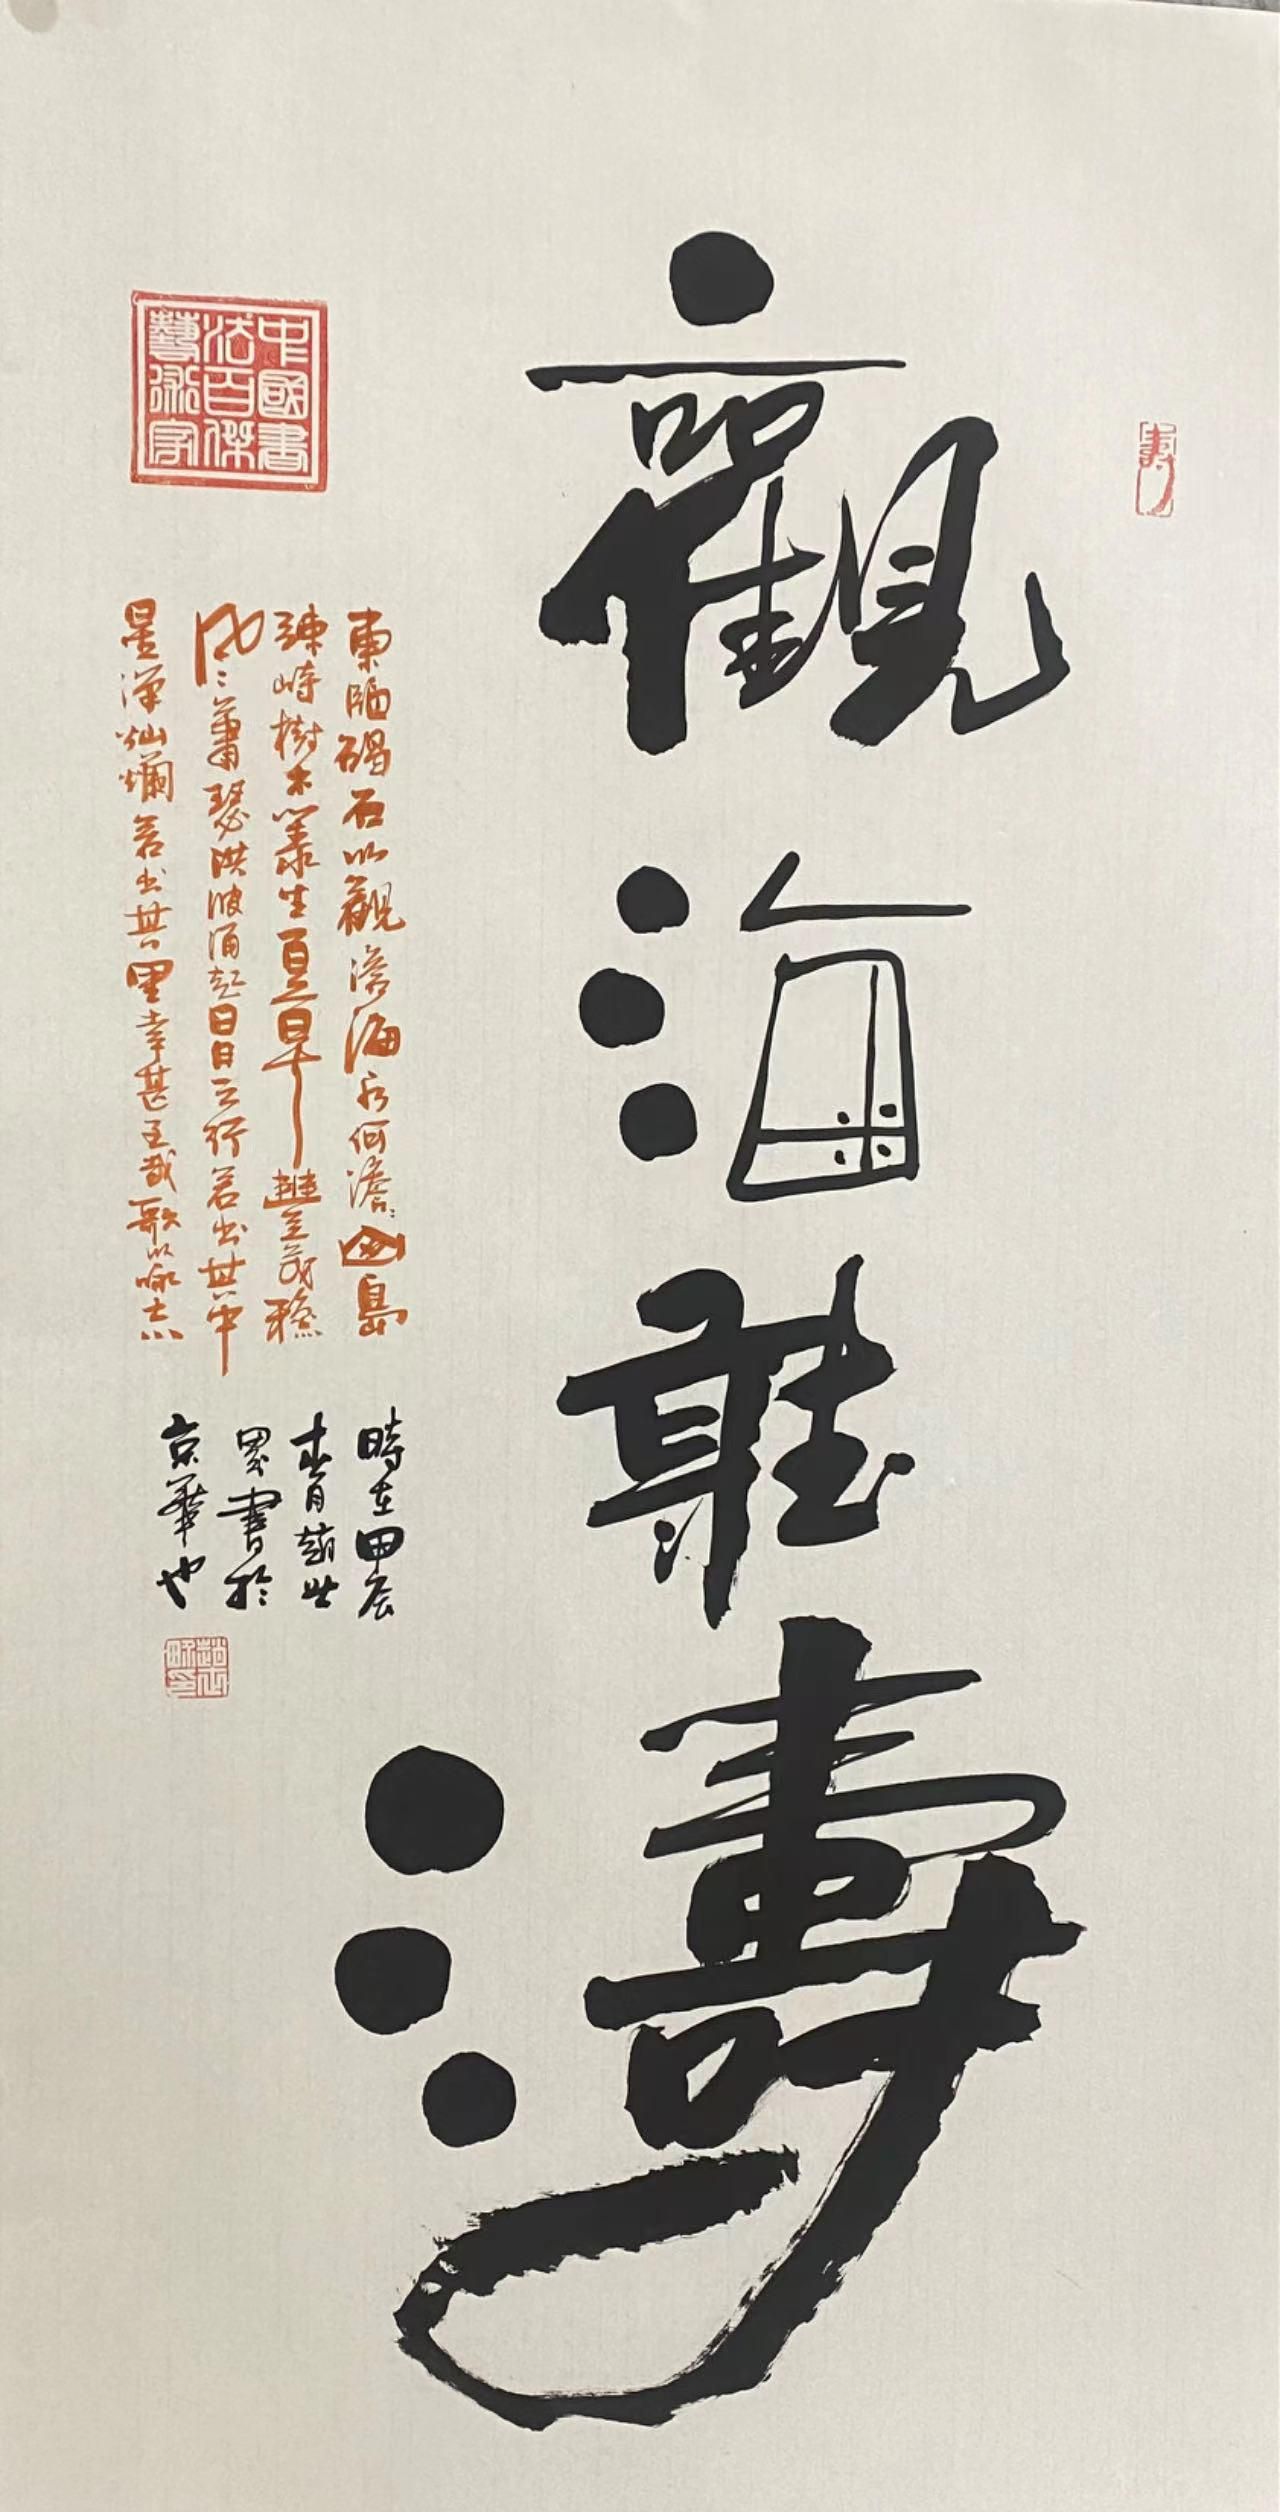 觀海聽濤
中國書
法百傑
藝術家
東臨碣石以觀滄海水何澹澹山島
竦峙樹木叢生百草豐茂穐
風蕭瑟洪波涌起日月之行若出其中
星漢灿爛若出其里幸甚至哉歌以咏志
時在甲辰
春月趙世
書於
京華也